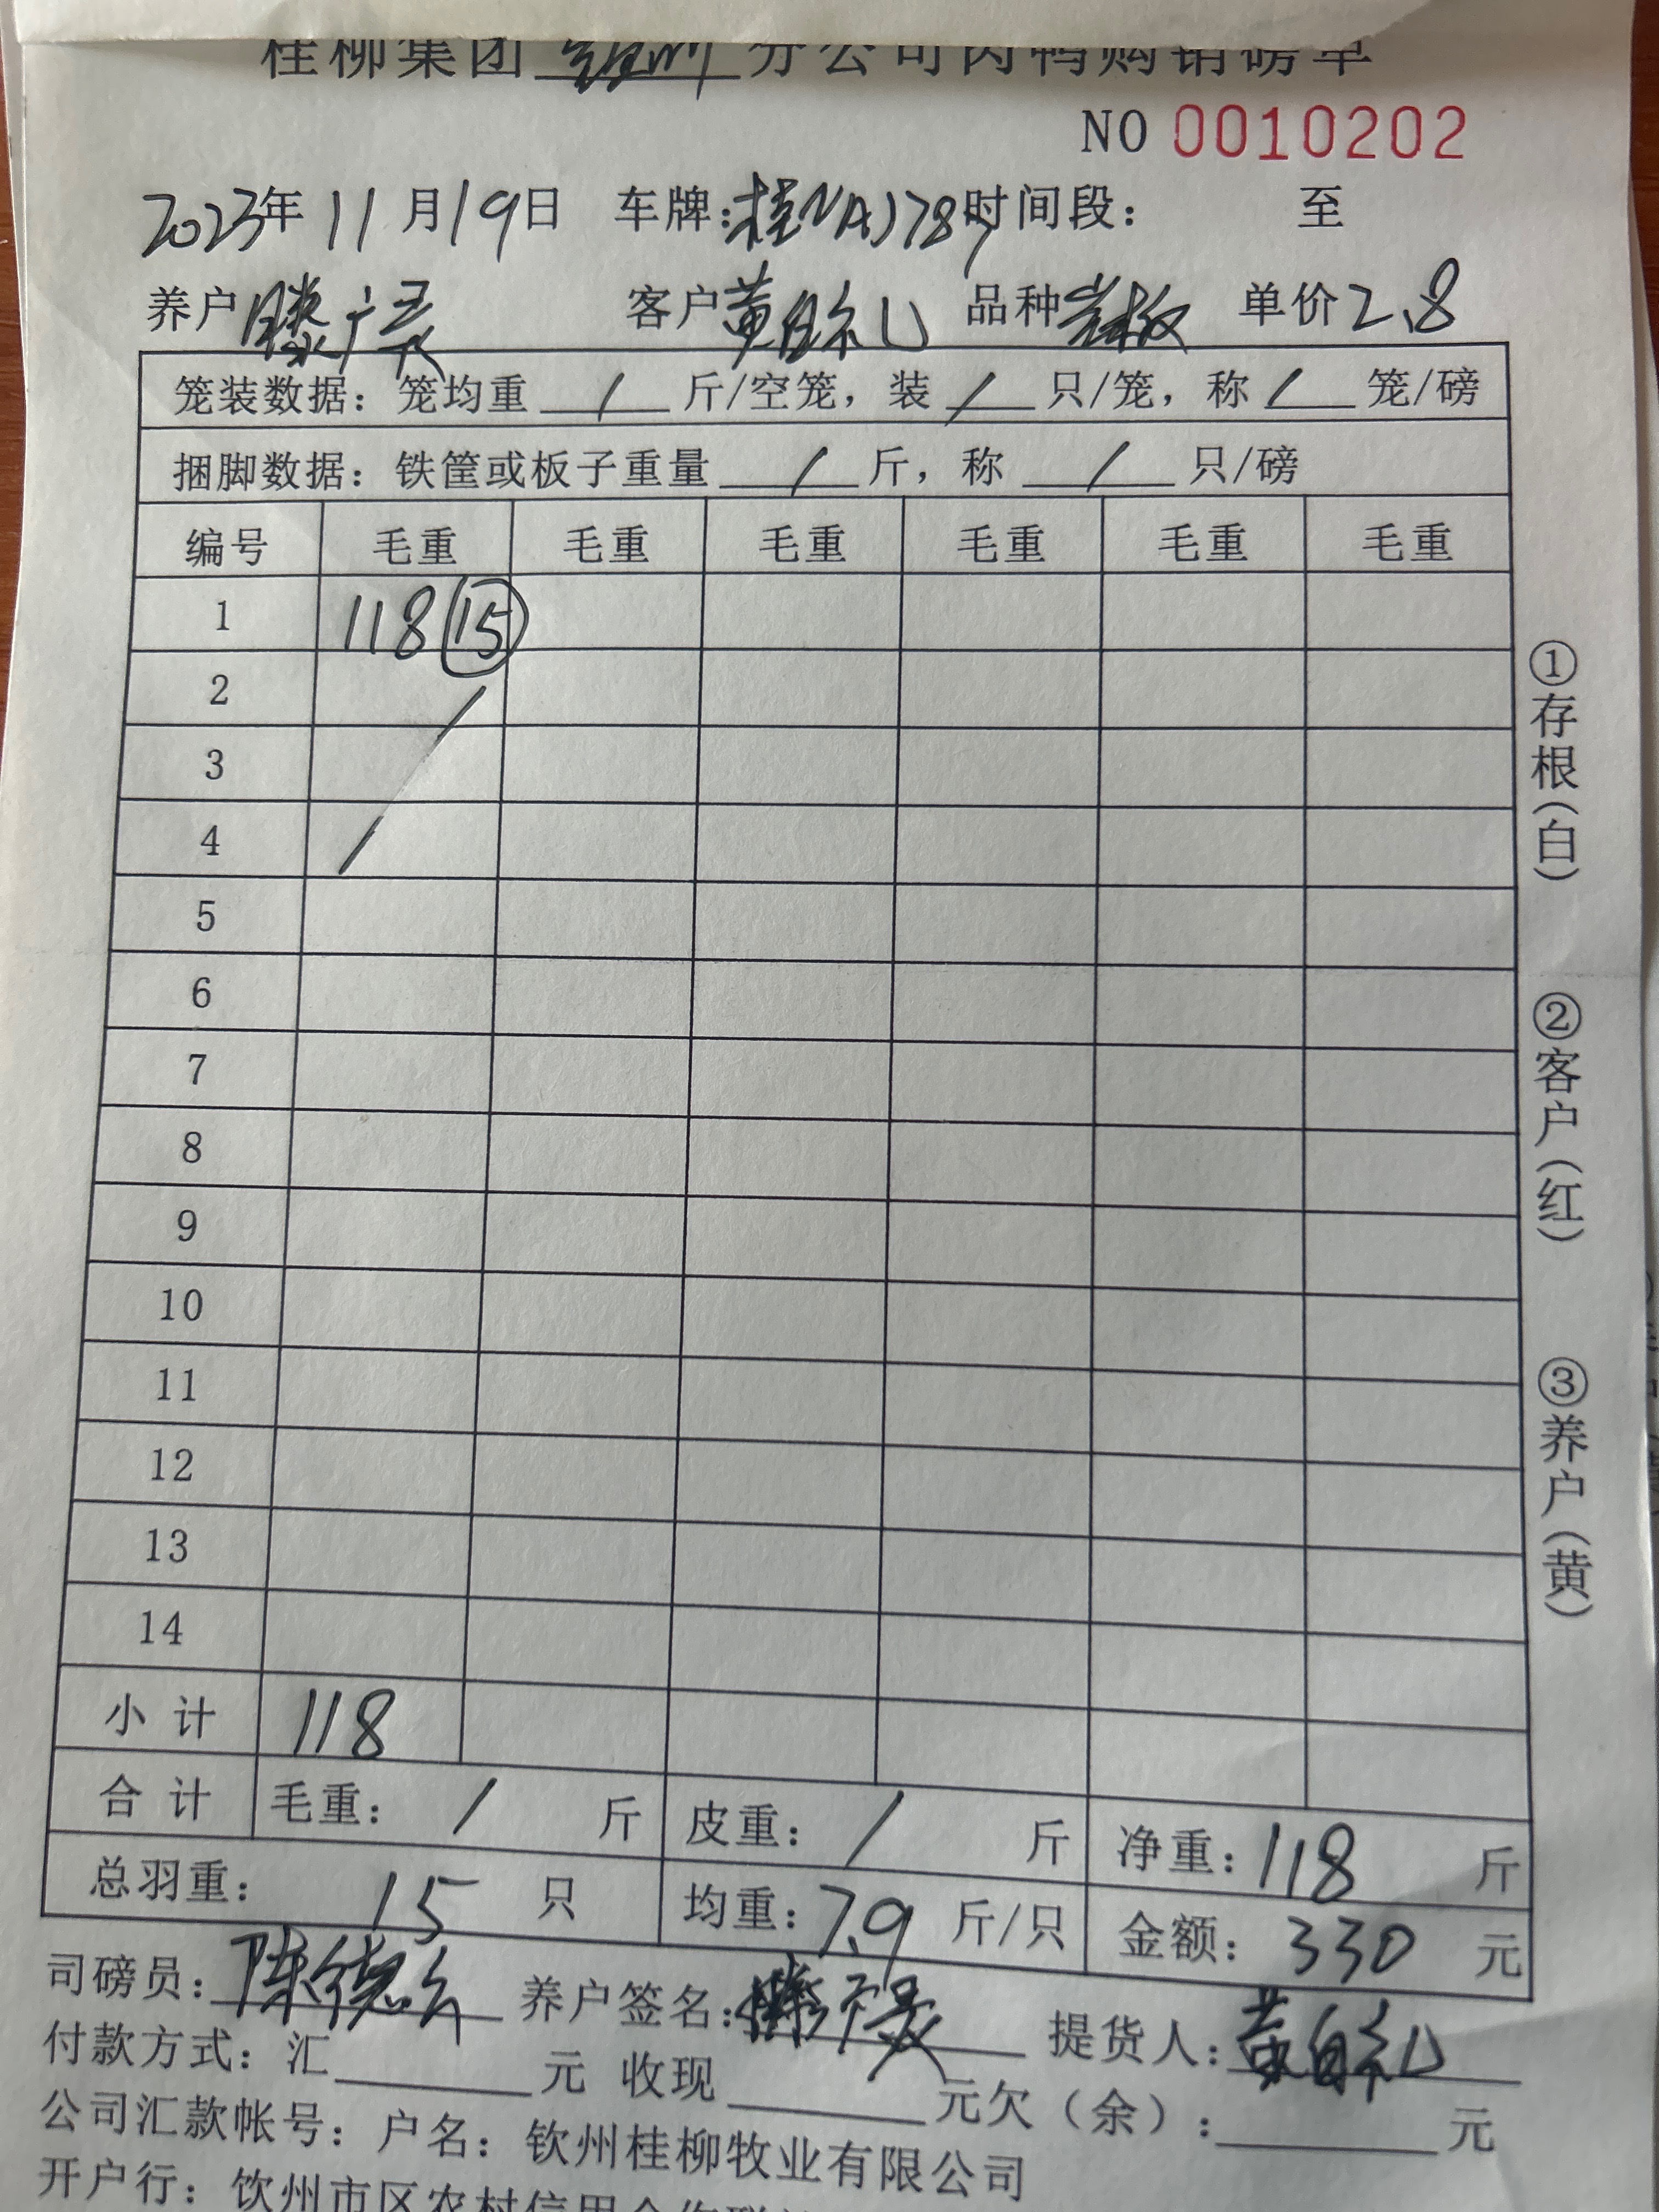 桂柳集团 钦州 分公司肉鸭购销磅单
NO 0010202
2023年 11 月 19 日 车牌: 时间段: 至
养户 滕广 客户 黄自礼 品种 岩板 单价 2.8
笼装数据: 笼均重 / 斤/空笼, 装 / 只/笼, 称 / 笼/磅
捆脚数据: 铁筐或板子重量 / 斤, 称 / 只/磅
编号 毛重 毛重 毛重 毛重 毛重 毛重
1 118 ⑮
2
3
4
5
6
7
8
9
10
11
12
13
14
小 计 118
合 计 毛重: / 斤 皮重: / 斤 净重: 118 斤
总羽重: 15 只 均重: 7.9 斤/只 金额: 330 元
司磅员: 陈德 养户签名: 滕广 提货人: 黄自礼
付款方式: 汇 元 收现 元欠(余): 元
公司汇款帐号: 户名: 钦州桂柳牧业有限公司
开户行: 钦州市区农村信用合作联社
①存根(白)
②客户(红)
③养户(黄)